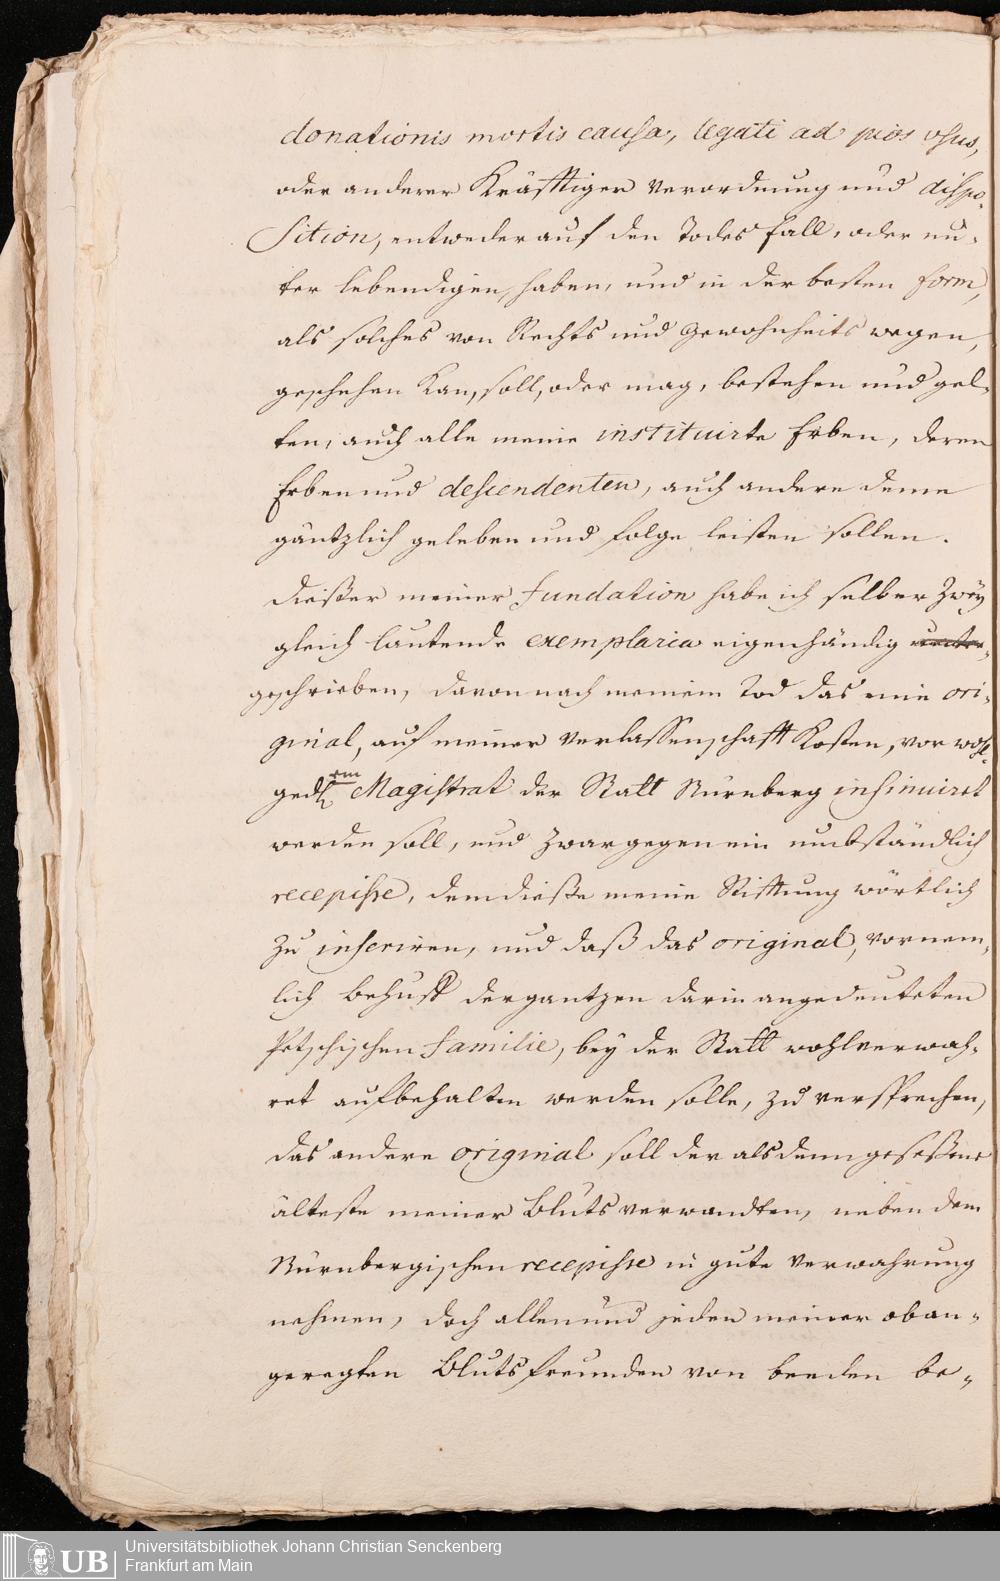 donationis mortis causa, legati ad pios usus,
oder anderer Kräfftiger Verordnung und dispo-
sition, entweder auf den Todes fall, oder un-
ter lebendigen, haben, und in der besten form,
als solches von Rechts und Gewohnheits wegen,
geschehen Kan, soll, oder mag, bestehen und gel-
ten, auch alle meine instituirte Erben, deren
Erben und descendenten, auch andere deme
gäntzlich geleben und folge leisten sollen.
Dießer meiner fundation habe ich selber Zwey
gleich lautende exemplaria eigenhändig unter-
geschrieben, davon nach meinem Tod das eine ori-
ginal, auf meiner Verlassenschafft Kosten, vor wohl-
gedh rm Magistrat der Statt Nürnberg insinuiret
werden soll, und Zwar gegen ein umbständlich
recepisse, dem dieße meine Stifftung wörtlich
zu inseriren, und daß das original, vornem-
lich behuff der gantzen darin angedeuteten
Petschischen familie, bey der Statt wohlverwah-
ret aufbehalten werden solle, zu versprechen,
das andere original soll der als dann geseßene
älteste meiner Bluts verwandten, neben dem
Nürnbergischen recepisse in gute Verwahrung
nehmen, doch allen und jeden meiner oban-
geregten Blutsfreunden von beeden be-
Universitätsbibliothek Johann Christian Senckenberg
Frankfurt am Main
UB